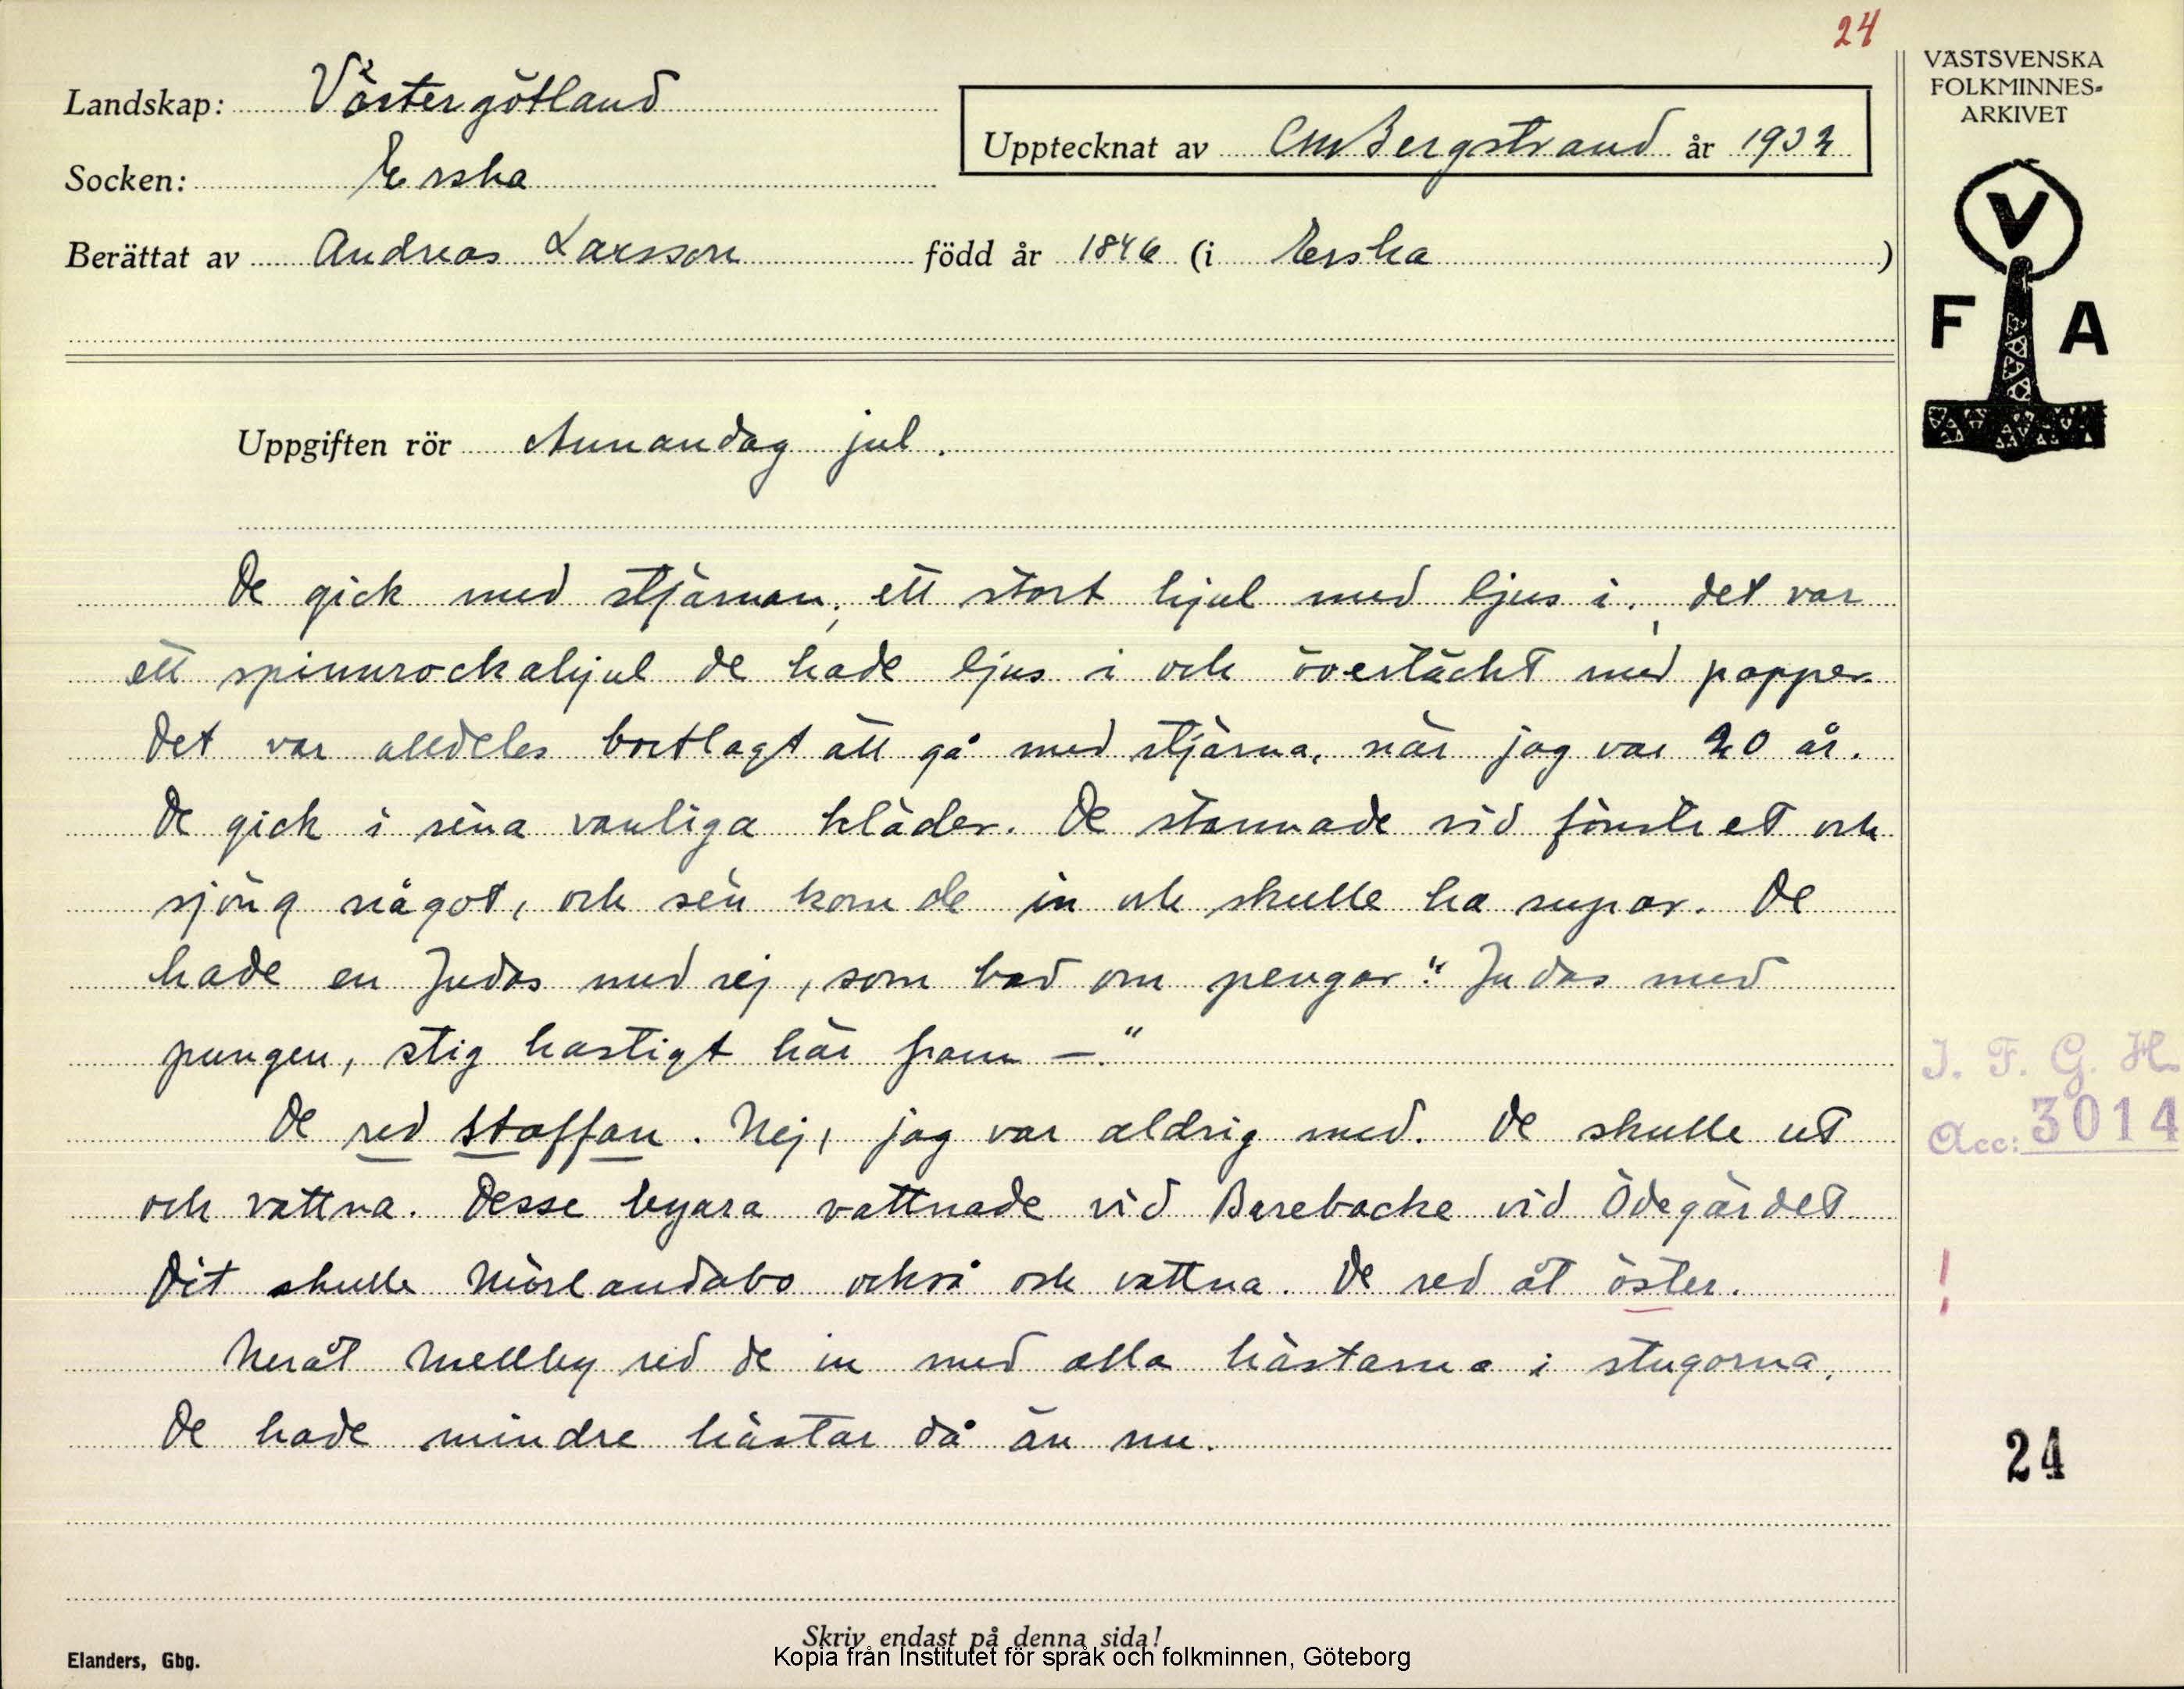 24
Landskap: Västergötland
Socken: Erska
Upptecknat av CM Bergstrand år 1932
Berättat av Andreas Larsson född år 1846 (i Erska)
VÄSTSVENSKA
FOLKMINNES-
ARKIVET
V
F A
Uppgiften rör Annandag jul.
De gick med stjärnan, ett stort hjul med ljus i, det var
ett spinnrockahjul de hade ljus i och övertäckt med papper.
Det var alldeles bortlagt att gå med stjärna, när jag var 20 år.
De gick i sina vanliga kläder. De stannade vid fönstret och
sjöng något, och sen kom de in och skulle ha supar. De
hade en Judas med sej, som bad om pengar: "Judas med
pungen, stig hastigt här fram –."
De red staffan. Nej, jag var aldrig med. De skulle ut
och vattna. Desse byara vattnade vid Barebacke vid Ödegärdet
Dit skulle Mörlandabo också och vattna. De red åt öster.
Neråt Mellby red de in med alla hästarna i stugorna,
De hade mindre hästar då än nu.
I. F. G. H.
Acc: 3014
!
24
Skriv endast på denna sida!
Kopia från Institutet för språk och folkminnen, Göteborg
Elanders, Gbg.